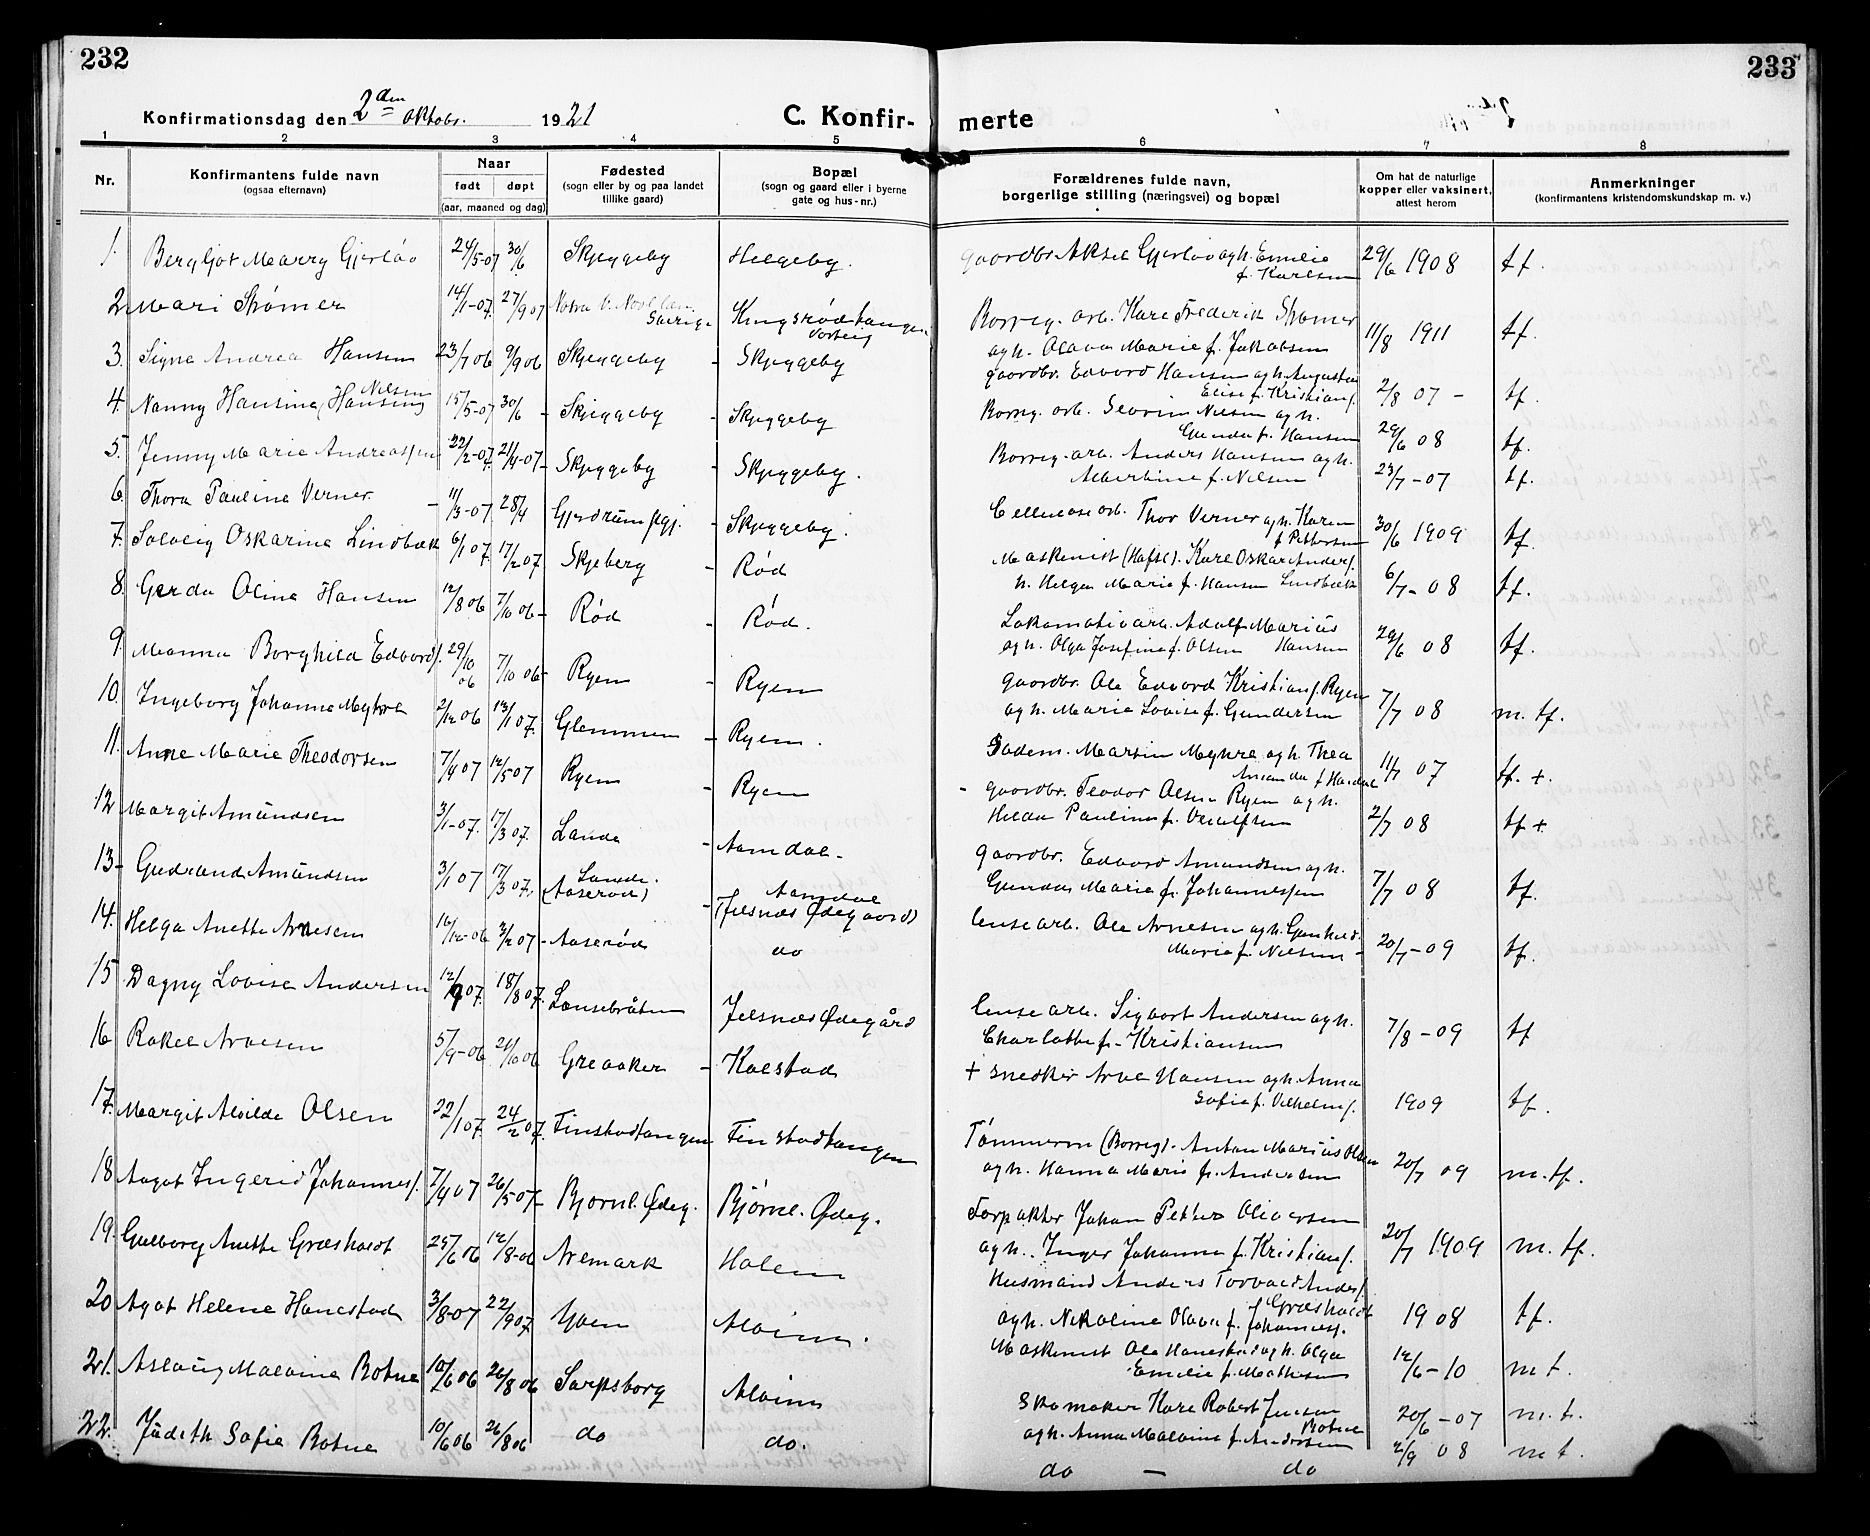 232
233
Konfirmationsdag den 2den Oktobr. 1921
C. Konfirmerte
1 2 3 4 5 6 7 8
Nr.
Konfirmantens fulde navn
(ogsaa efternavn)
Naar
født døpt
(aar, maaned og dag)
Fødested
(sogn eller by og paa landet
tillike gaard)
Bopæl
(sogn og gaard eller i byerne
gate og hus-nr.)
Forældrenes fulde navn,
borgerlige stilling (næringsvei) og bopæl
Om hat de naturlige
kopper eller vaksinert,
attest herom
Anmerkninger
(konfirmantens kristendomskundskap m. v.)
1. Bergljot Marry Gjerløv 24/5-07 30/6 Skjeggeby Helgeby. gaardbr. Aksel Gjerløv og h. Emilie
f. Karlsen 29/6 1908 tf.
2. Mari Strømer 14/1-07. 27/9 07 Sverige Kingsrødtangen
Borreg. arb. Kare Frederik Strømer
og h. Olava Marie f. Jakobsen 11/8 1911 tf.
3. Signe Andrea Hansen 23/7 06 9/9 06 Skjeggeby - Skjeggeby
gaardbr. Edvard Hansen og h. Augusta
Elise f. Kristians. 2/8 07 - tf.
4. Nanny Hansine (Hansine) Nelsen 15/5-07 30/6 - Skjeggeby - Skjeggeby
Borreg. arb. Severin Nilsen og h.
Gunda f. Hansen 29/6 08 tf.
5. Jenny Marie Andreassen 22/2-07. 21/4-07 - Skjeggeby - Skjeggeby.
Borreg. arb. Anders Hansen og h.
Albertine f. Nilsen 23/7-07 tf.
6. Thora Pauline Verner - 11/3-07 28/4 Gjerdrum - Skjeggeby.
Cellulosearb. Thor Verner og h. Karen
f. Pettersen 30/6 1909 tf.
7. Solveig Oskarine Lindbæk 6/1 07. 17/2 07. Skjeberg - Rød
Maskinist (Hafsl). Kare Oskar Anders.
h. Helga Marie f. Hansen Lindbæk 6/7-08 tf.
8. Gerda Oline Hansen 12/8 06 7/10 06 - Rød - Rød.
Lokomotivarb. Adolf Marius
og h. Olga Josefine f. Olsen Hansen 29/6 08 tf.
9. Manna Borghild Edvards. 29/10 06 7/10 06 - Ryen - Ryen
gaardbr. Ole Edvard Kristians. Ryen
og h. Marie Lovise f. Gundersen 7/7 08 m. tf.
10. Ingeborg Johanne Myhre 2/12 06 13/1 07. Glemmen - Ryen.
Sadem. Martin Myhre og h. Thea
Amanda f. 11/7 07 tf. +.
11. Anne Marie Theodorsen 7/4 07 12/5 07 Ryen - Ryen
- gaardbr. Teodor Olsen Ryen og h.
Hilda Pauline f. 2/7 08 tf +
12 Margit Amundsen 3/1-07. 17/3 07. Lande - Aamdal -
gaardbr. Edvard Amundsen og h.
Gunda Marie f. Johannessen 7/7 08 tf.
13 - Gudrund Amundsen 3/1 07 17/3 07. Lande. (Aaserød) - Aamdal
(Jelsnæs Ødegaard)
lensearb. Ole Arnesen og h. Gunhild
Marie f. Nilsen - 20/7-09 tf.
14. Helga Anette Arnesen 16/12-06 3/2 07 - Aaserød do
15 Dagny Lovise Andersen 12/ 07. 18/8 07. Lensebråten Jelsnæs Ødegård
lensearb. Sigvart Andersen og h.
Charlotte f. Kristiansen 7/8-09 tf
16 Rakel Arvesen 5/9-06 21/10 06 Greaaker - Kolstad
+ snedker Arve Hansen og h. Anna
Sofie f. Vilhelms. 1909 tf.
17. Margit Alvilde Olsen 22/1 07. 24/2 07. Finstadtangen Finstadtangen
Tømmerm (Borreg). Anton Marius Olsen
og h. Hanna Marie f. Andersen 20/7 09 m. tf.
18 Aagot Ingerid Johannes. 7/4 07 26/5 07 - Bjørnl. Ødeg. Bjørnl. Ødeg.
Forpakter Johan Petter Oliversen
og h. Inger Johanne f. Kristians. 20/7 1909 m. tf.
19. Gulborg Anette Græsholdt 25/6 06 12/8-06 Aremark Holein
Husmand Anders Torvald Anders.
Græsholdt
og h. Nikoline Olava f. Johannes. 1908 tf.
20 Agot Helene Hanestad 3/8-07 22/9 07. Yven Alvim.
Maskinist Ole Hanestad og h. Olga
Emilie f. Mathisen 12/6-10 m t.
21. Aslaug Malvine Botne 10/6 06 26/8 06 Sarpsborg Alvim
Skomaker Kare Robert Jensen
Botne
og h. Anna Malvine f. Andersen 20/6-07 m. t.
22. Judith Sofie Botne 10/6 06 26/8 06 do do.
do - do 2/9 08 m t.